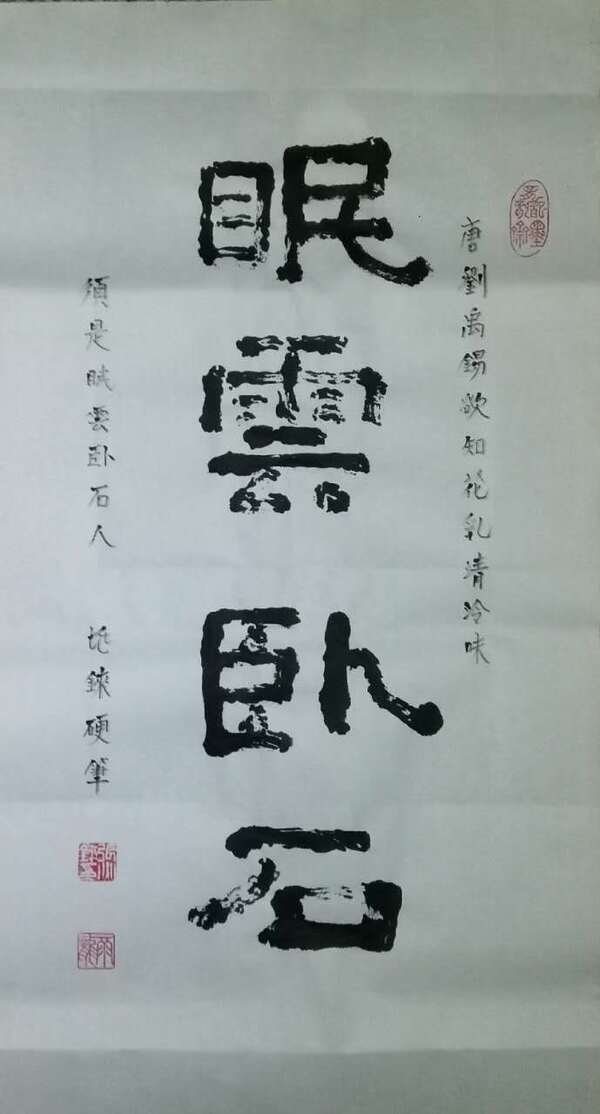 唐劉禹錫欲知花乳清泠味
眠雲卧石
須是眠雲卧石人 硬筆